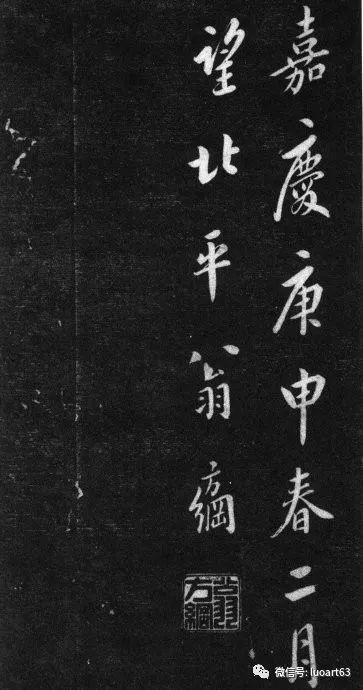 嘉慶庚申春二月
望北平翁方綱
翁方綱
微信号: luoart63